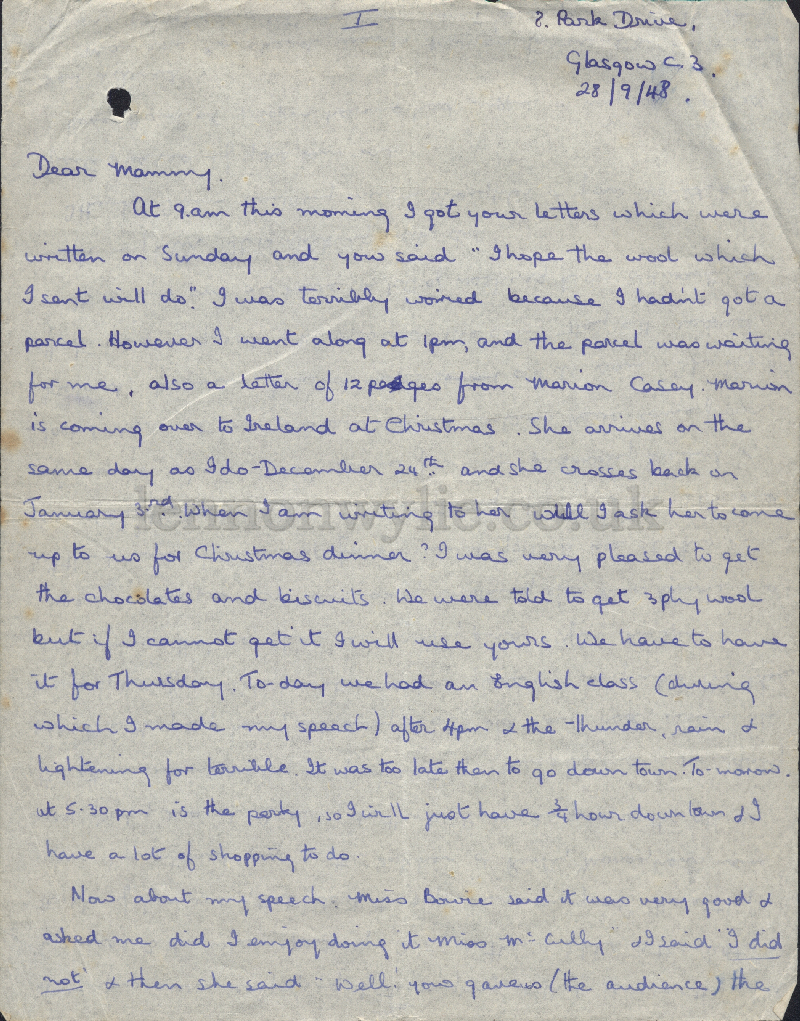 I
8. Park Drive,
Glasgow C. 3.
28/9/48.
Dear Mammy.
At 9.am this morning I got your letters which were
written on Sunday and you said "I hope the wool which
I sent will do". I was terribly worried because I hadn't got a
parcel. However I went along at 1pm, and the parcel was waiting
for me, also a letter of 12 pages from Marion Casey. Marion
is coming over to Ireland at Christmas. She arrives on the
same day as I do - December 24th and she crosses back on
January 3rd. When I am writing to her will I ask her to come
lennonwylie.co.uk
up to us for Christmas dinner? I was very pleased to get
the chocolates and biscuits. We were told to get 3 ply wool
but if I cannot get it I will use yours. We have to have
it for Thursday. To-day we had an English class (during
which I made my speech) after 4pm & the thunder, rain &
lightening for terrible. It was too late then to go down town. To-morow.
at 5.30pm is the party, so I will just have ¾ hour down town & I
have a lot of shopping to do.
Now about my speech. Miss Bowie said it was very good &
asked me did I enjoy doing it Miss McCully & I said 'I did
not' & then she said "Well! you gave us (the audience) the